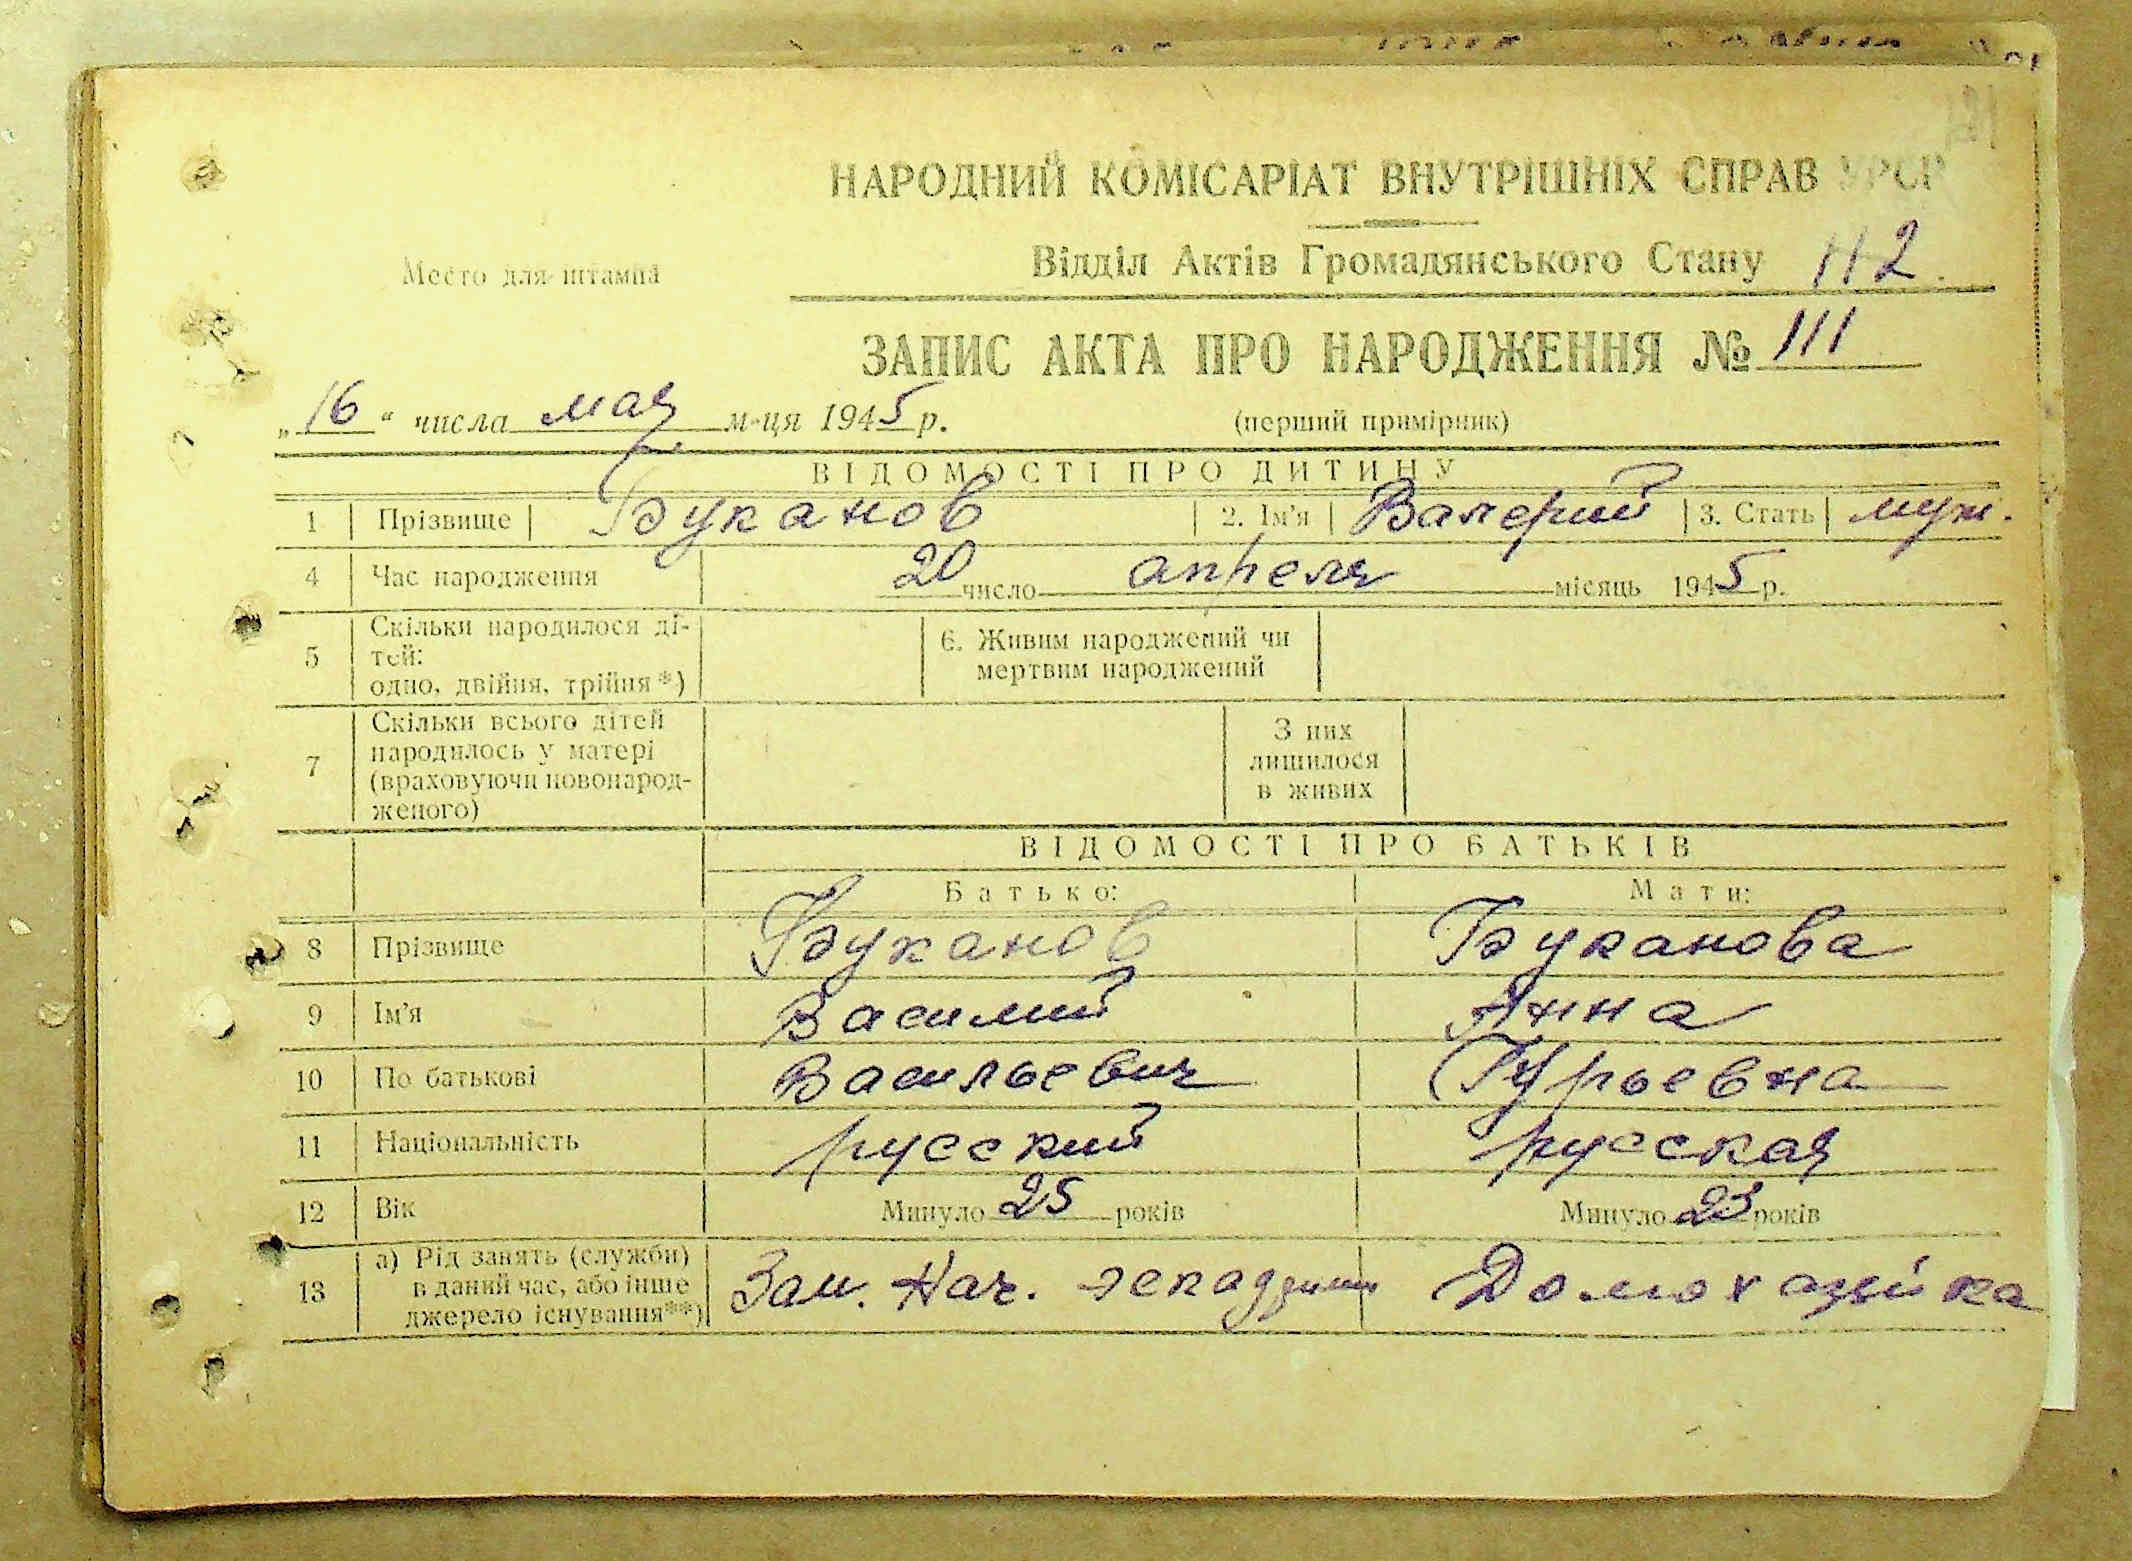 НАРОДНИЙ КОМІСАРІАТ ВНУТРІШНІХ СПРАВ УРСР
Место для штампа
Відділ Актів Громадянського Стану Н2.
ЗАПИС АКТА ПРО НАРОДЖЕННЯ № 111
„16“ числа мая м-ця 1945 р. (перший примірник)
ВІДОМОСТІ ПРО ДИТИНУ
1 Прізвище Буканов 2. Ім'я Валерий 3. Стать муж.
4 Час народження 20 число апреля місяць 1945 р.
5 Скільки народилося ді-
тей:
одно, двійня, трійня*)
6. Живим народжений чи
мертвим народжений
7 Скільки всього дітей
народилось у матері
(враховуючи новонарод-
женого)
З них
лишилося
в живих
ВІДОМОСТІ ПРО БАТЬКІВ
Батько: Мати:
8 Прізвище Буканов Буканова
9 Ім'я Василий Анна
10 По батькові Васильевич Гурьевна
11 Національність русский русская
12 Вік Минуло 25 років Минуло 23 років
13 а) Рід занять (служби)
в даний час, або інше
джерело існування**)
Зам. Нач. Домохазяйка